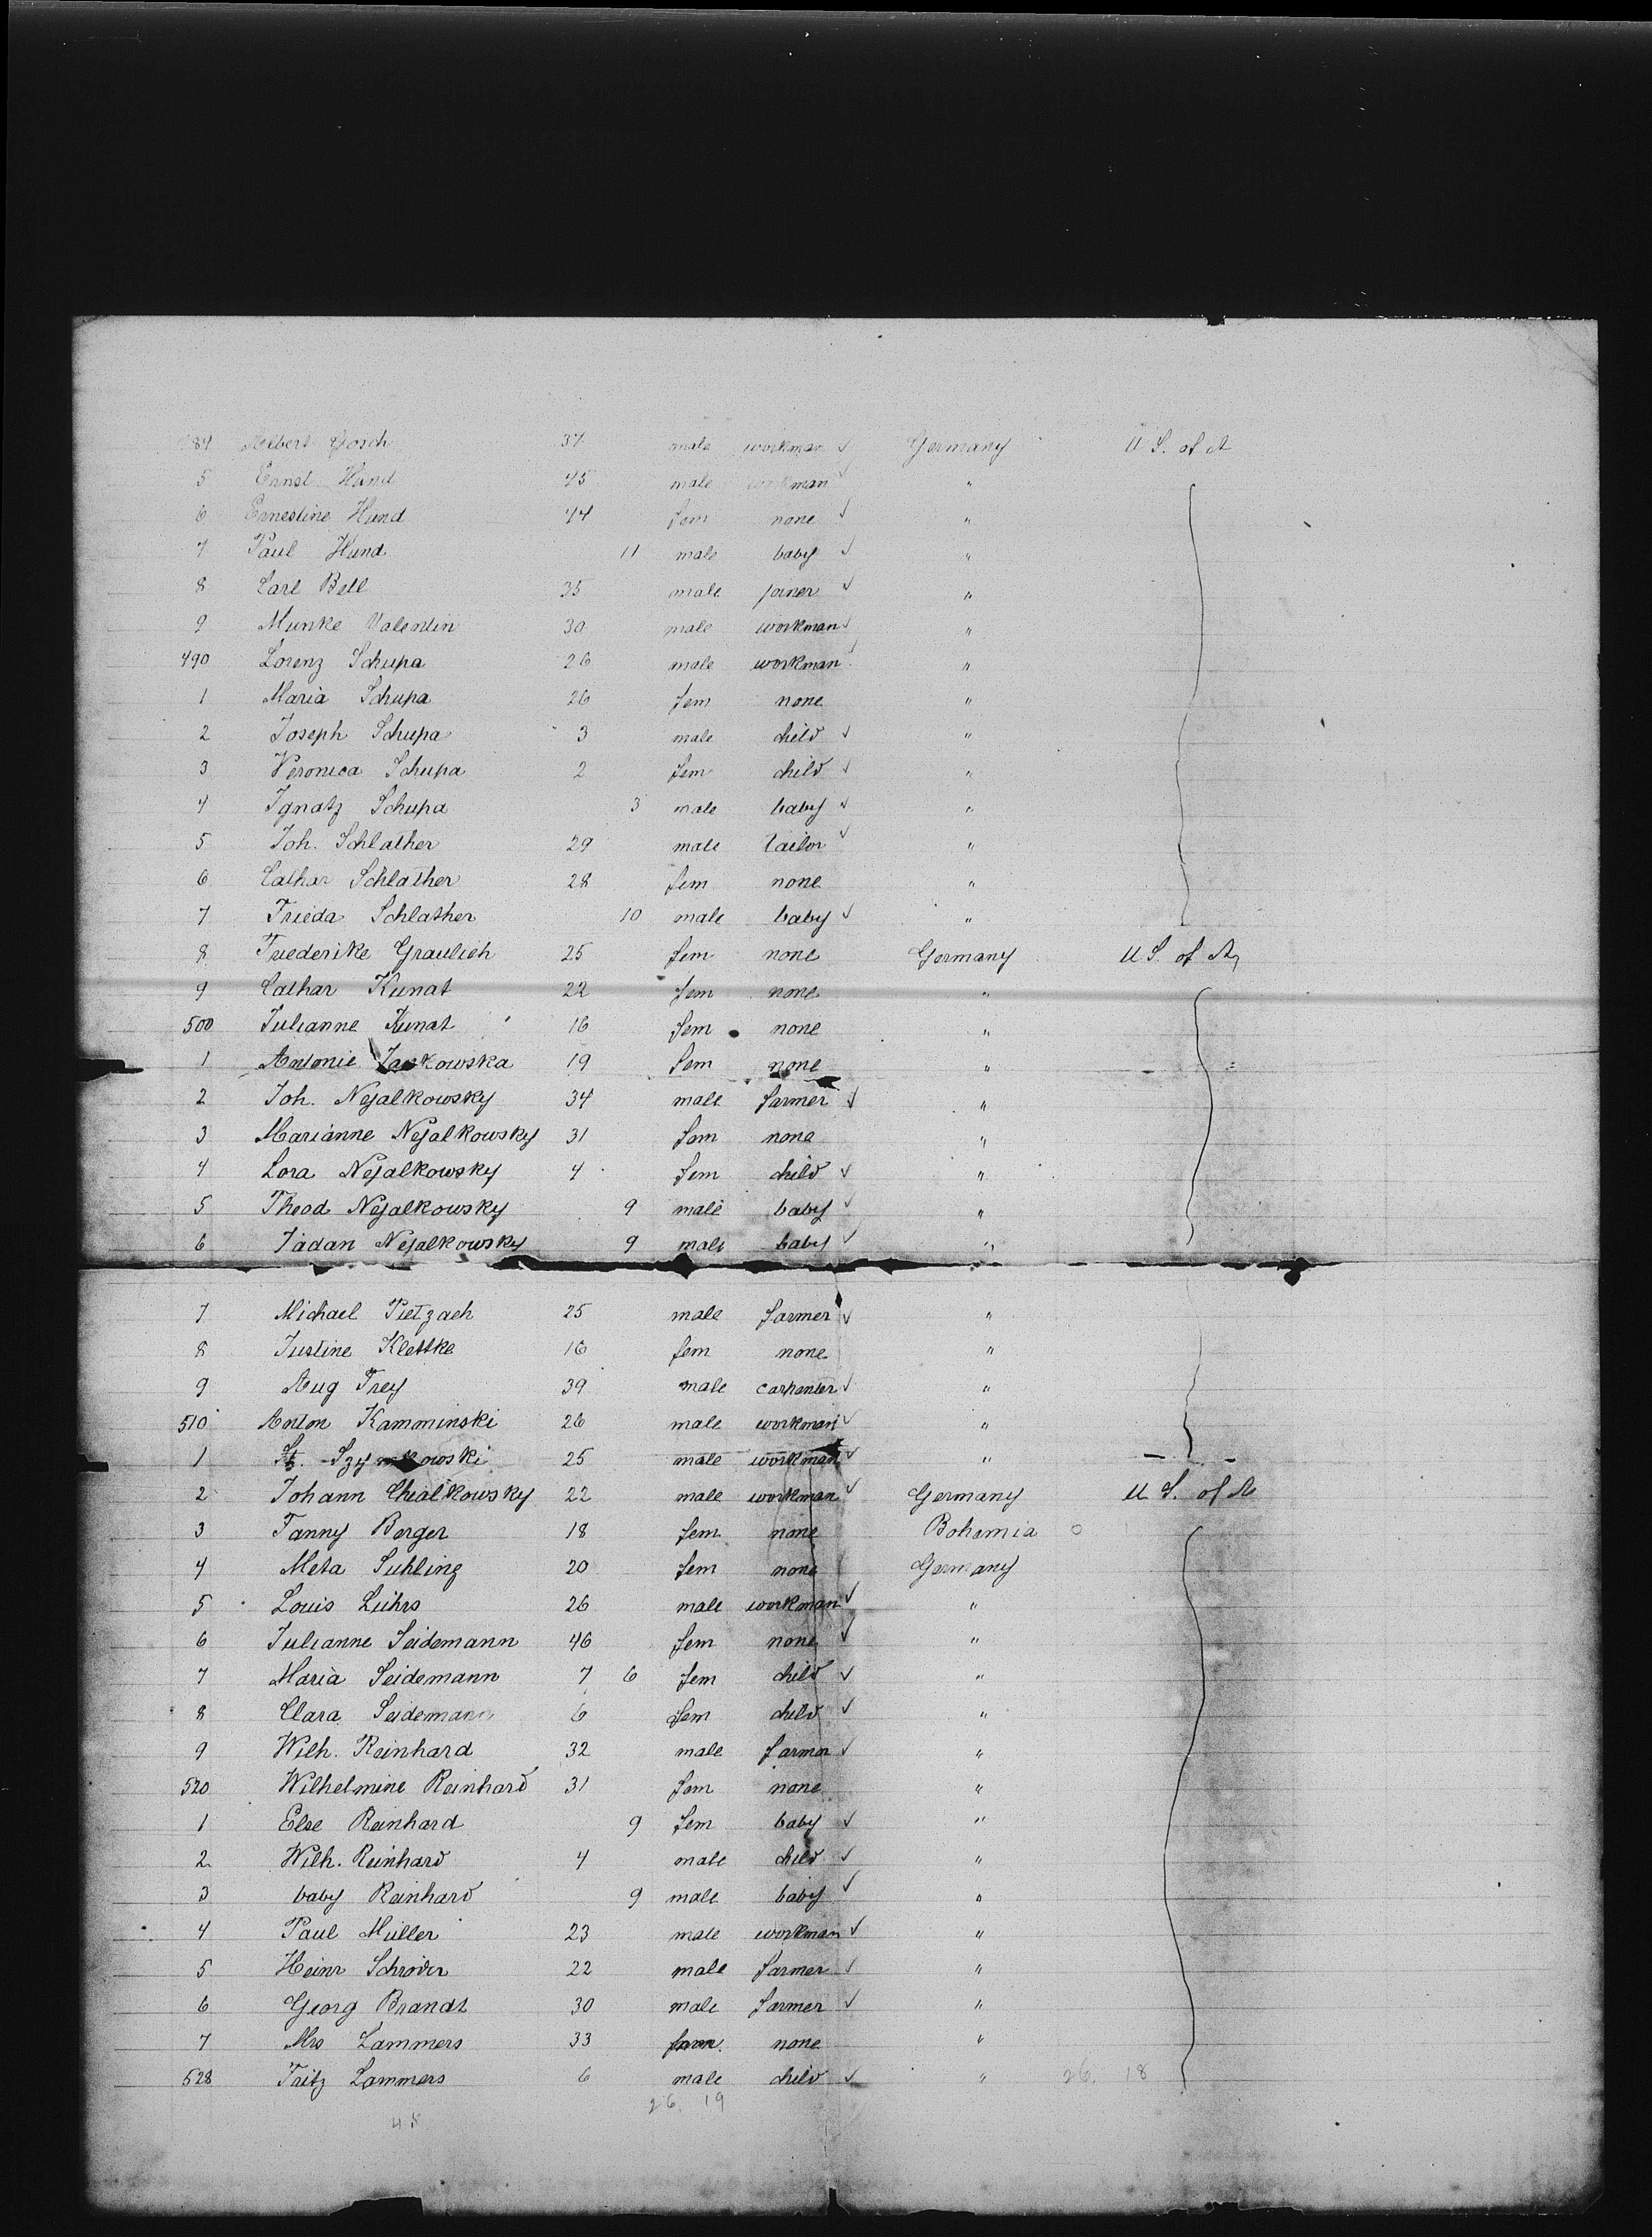 484 Albert Gosch 37 male workman ✓ Germany U S. of A
5 Ernst Hund 45 male workman ✓ "
6 Ernestine Hund 44 fem none ✓ "
7 Paul Hund 11 male baby ✓ "
8 Carl Bell 35 male joiner ✓ "
9 Munke Valentin 30 male workman ✓ "
490 Lorenz Schupa 26 male workman ✓ "
1 Maria Schupa 26 fem none "
2 Joseph Schupa 3 male child ✓ "
3 Veronica Schupa 2 fem child ✓ "
4 Ignatz Schupa 3 male baby ✓ "
5 Joh. Schlather 29 male tailor ✓ "
6 Cathar Schlather 28 fem none "
7 Frieda Schlather 10 male baby ✓ "
8 Friederike Graulich 25 fem none Germany U S. of A
9 Cathar Kunat 22 fem none "
500 Julianne Kunat 16 fem none "
1 Antonie 19 fem none "
2 Joh. Nejalkowsky 34 male farmer ✓ "
3 Marianne Nejalkowsky 31 fem none "
4 Lora Nejalkowsky 4 fem child ✓ "
5 Theod Nejalkowsky 9 male baby ✓ "
6 Jadan Nejalkowsky 9 male baby ✓ "
7 Michael Pietzach 25 male farmer ✓ "
8 Justine Klettke 16 fem none "
9 Aug Frey 39 male carpenter ✓ "
510 Anton Kamminski 26 male workman ✓ "
1 St. Szymkowski 25 male workman ✓ "
2 Johann Chialkowsky 22 male workman ✓ Germany U S. of A
3 Fanny Berger 18 fem none Bohemia o
4 Meta Suhling 20 fem none Germany
5 Louis Lührs 26 male workman ✓ "
6 Julianne Seidemann 46 fem none ✓ "
7 Maria Seidemann 7 6 fem child ✓ "
8 Clara Seidemann 6 fem child ✓ "
9 Wilh. Reinhard 32 male farmer ✓ "
520 Wilhelmine Reinhard 31 fem none "
1 Else Reinhard 9 fem baby ✓ "
2 Wilh. Reinhard 4 male child ✓ "
3 baby Reinhard 9 male baby ✓ "
4 Paul Müller 23 male workman ✓ "
5 Heinr Schröder 22 male farmer ✓ "
6 Georg Brandt 30 male farmer ✓ "
7 Mrs Lammers 33 fem. none "
528 Fritz Lammers 6 male child ✓ " 26. 18
26. 19